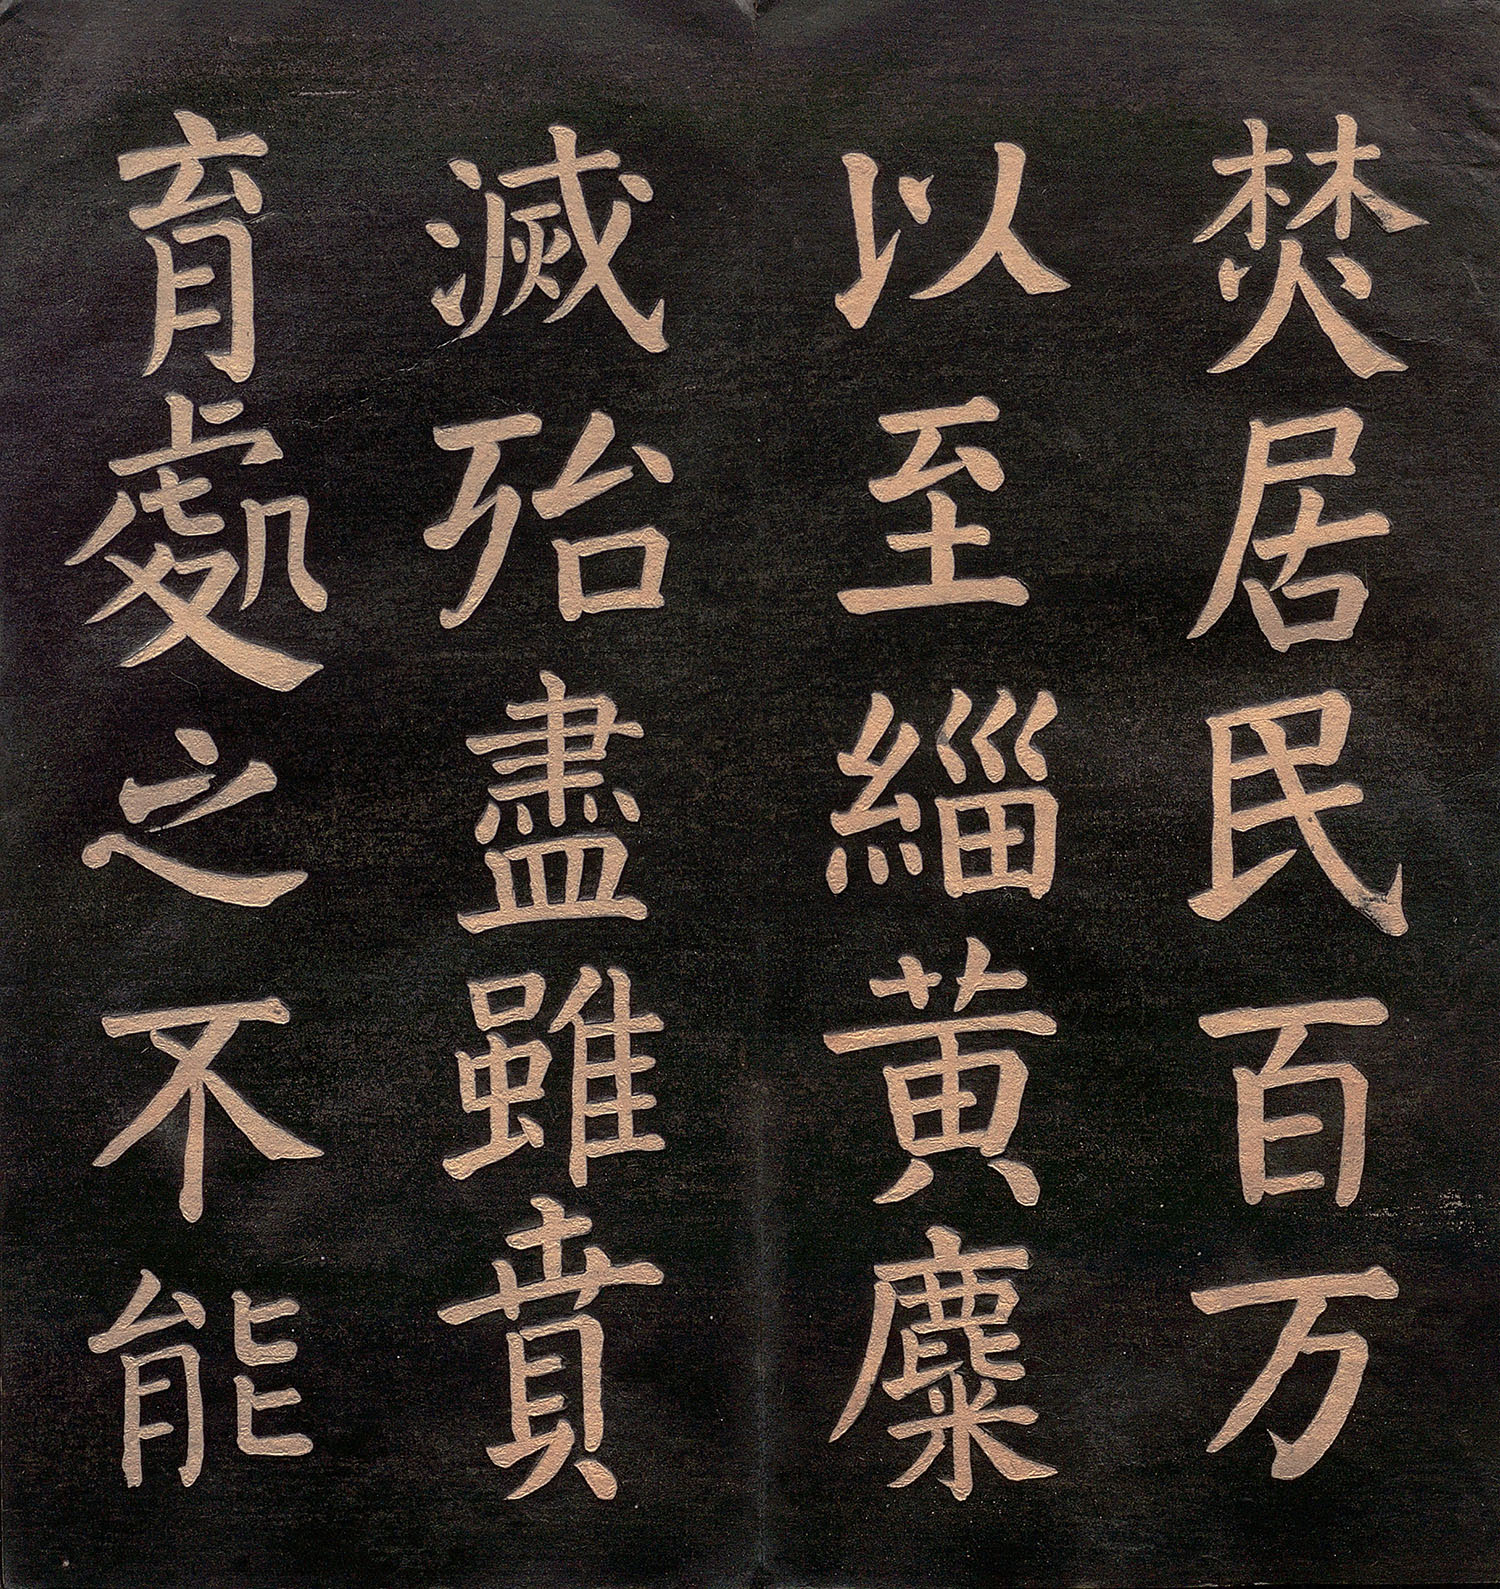 焚居民百万
以至緇黄麋
滅殆盡雖賁
育處之不能